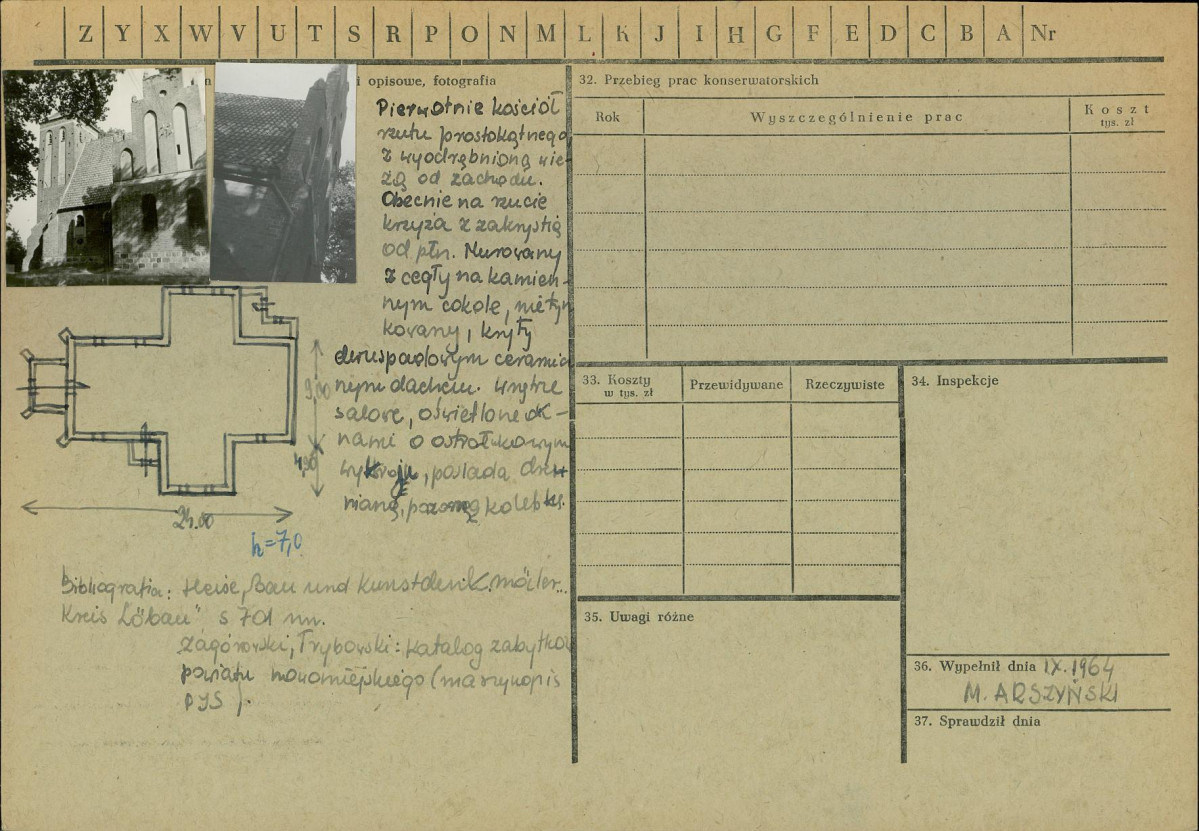 Z Y X W V U T S R P O N M L K J I H G F E D C B A Nr
i opisowe, fotografia
Pierwotnie kościół
rzutu prostokątnego
z wyodrębnioną wie-
żą od zachodu.
Obecnie na rzucie
krzyża z zakrystią
od płn. Murowany
z cegły na kamien-
nym cokole, nietyn
kowany, kryty
dwuspadowym ceramicz
nym dachem. Wnętrze
salowe, oświetlone ok-
nami o ostrołukowym
wykroju, posiada drew
nianą, pozorną kolebkę.
9,00
4,90
24.00
h=7,0
Bibliografia: Heise, Bau und Kunstdenkmäler...
Kreis Löbau" s 701 nn.
Zagórowski, Trybowski: Katalog zabytków
powiatu nowomiejskiego (maszynopis
PIS).
32. Przebieg prac konserwatorskich
Rok
Wyszczególnienie prac
Koszt
tys. zł
33. Koszty
w tys. zł
Przewidywane
Rzeczywiste
34. Inspekcje
35. Uwagi różne
36. Wypełnił dnia IX.1964
M. ARSZYŃSKI
37. Sprawdził dnia